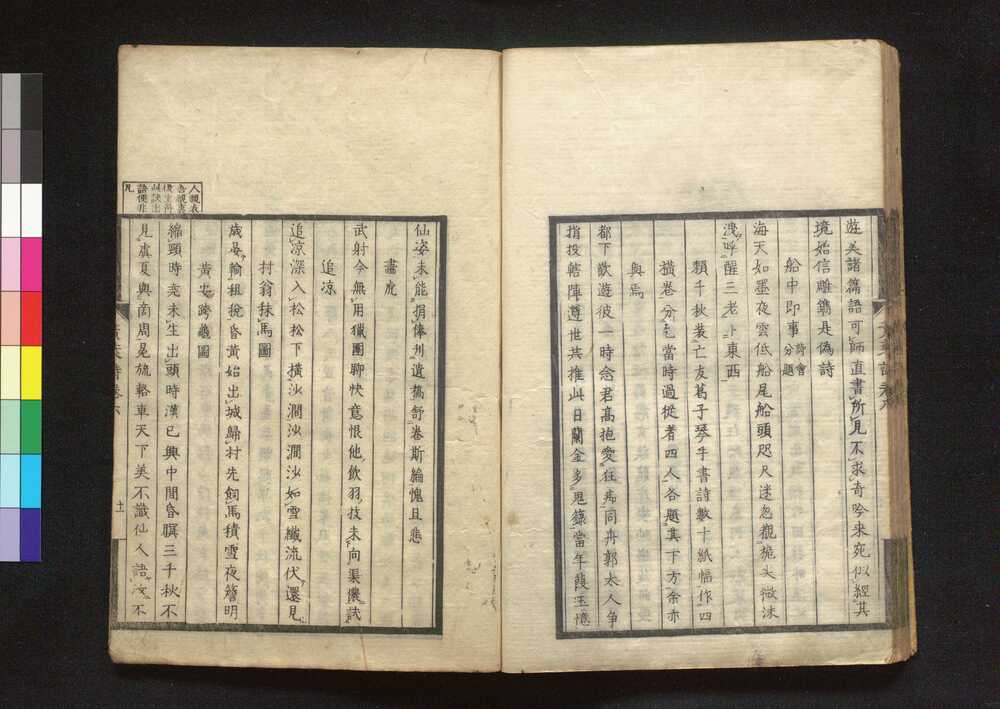 遊美諸篇語可師直書所見不求奇吟來宛似經其
境始信雕鐫是偽詩
船中即事 詩會分題
海天如墨夜雲低船尾船頭咫尺迷忽觀桅頭微沫
洩呼醒三老上東西
賴千秋裝亡友葛子琴手書詩數十紙幅作四
橫卷分乞當時過從者四人各題其下方余亦
與焉
都下歡遊彼一時念君高抱愛在弗同舟郭太人爭
指投轄陳遵世共推此日蘭金多鬼籙當年葭玉憶
仙姿未能捐俸刊遺藁舒卷斯編愧且悲
畫虎
武射今無用獵圍聊快意恨他飲羽技未向渠儂試
追凉
追凉深入松松下橫沙澗沙澗沙如雪纖流伏還見
村翁抹馬圖
歲晏輸租稅昏黃始出城歸村先飼馬積雪夜簷明
黃安跨龜圖
縮頸時堯未生出頭時漢已興中間昏瞑三千秋不
見虞夏與商周冕旒輅車天下美不識仙人語汝不
十